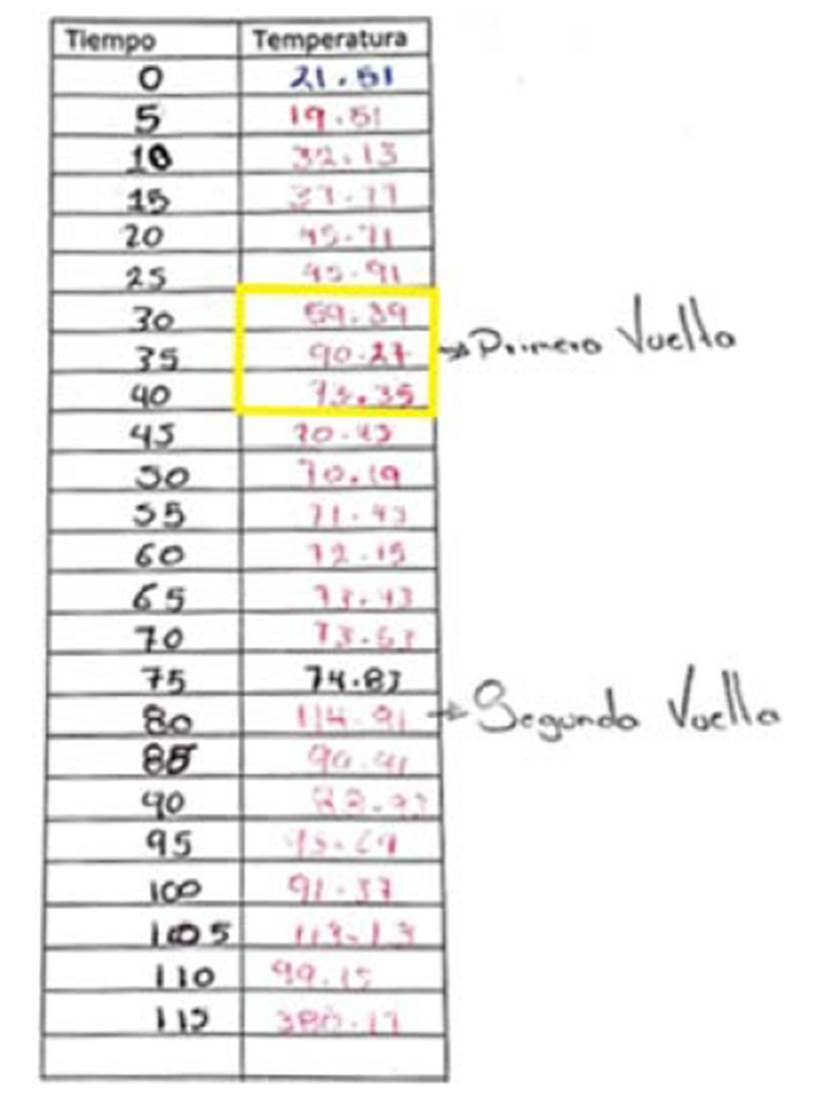 Tiempo Temperatura
0 21.51
5 19.51
10 32.13
15
20 45.71
25 45.91
30 59.39
35 90.27
40 73.35
→ Primera Vuelta
45 70.43
50 70.19
55 71.43
60 72.15
65 73.43
70 73.63
75 74.83
80 114.91
→ Segunda Vuelta
85 90.41
90
95
100 91.37
105 113.13
110 99.15
115 380.17